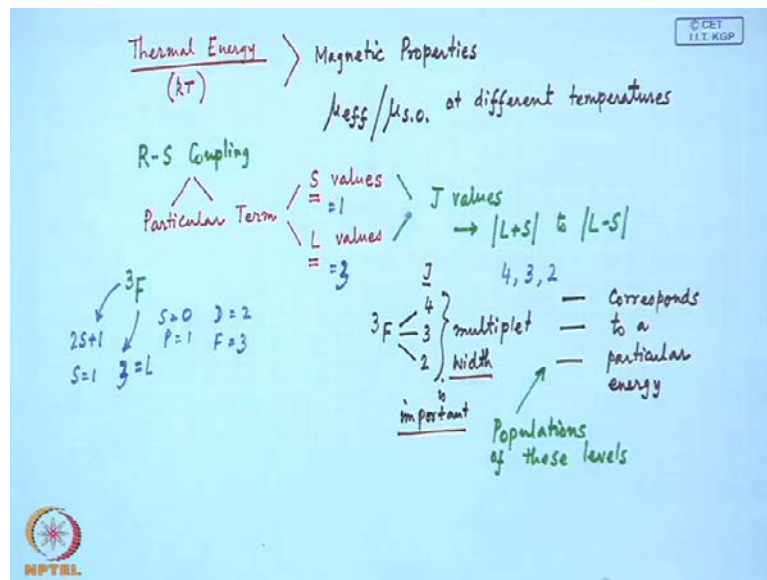 © CET
I.I.T. KGP
Thermal Energy
(kT)
Magnetic Properties
μeff/μs.o. at different temperatures
R-S Coupling
Particular Term
S values
= 1
L values
= 3
J values
→ |L+S| to |L-S|
4, 3, 2
³F
2S+1
S=1
3=L
S=0 D=2
P=1 F=3
J
³F
4
3
2
multiplet
width
is
important
Corresponds
to a
particular
energy
Populations
of these levels
NPTEL